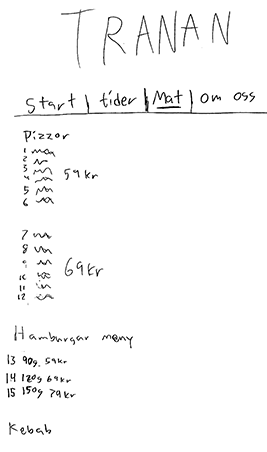 TRANAN
Start | tider | Mat | om oss
Pizzor
1
2
3
4 59kr
5
6
7
8
9 69kr
10
11
12
Hamburgar meny
13 90g. 59kr
14 120g 69kr
15 150g 79kr
Kebab